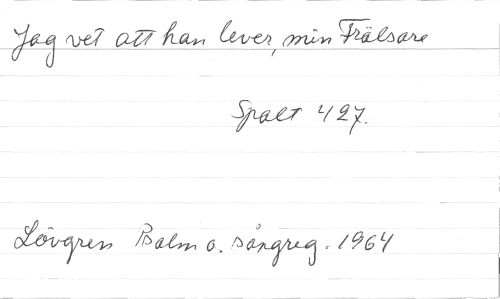 Jag vet att han lever, min Frälsare
Spalt 427.
Lövgren Psalm o. sångreg. 1964